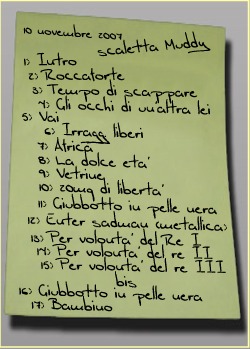 10 novembre 2007
scaletta Muddy
1) Intro
2) Roccaforte
3) Tempo di scappare
4) Gli occhi di un'altra lei
5) Vai
6) Irragg liberi
7) Africa
8) La dolce eta'
9) Vetrine
10) 20mg di liberta'
11) Giubbotto in pelle nera
12) Enter sadman (metallica)
13) Per volonta' del Re I
14) Per volonta' del re II
15) Per volonta' del re III
bis
16) Giubbotto in pelle nera
17) Bambino